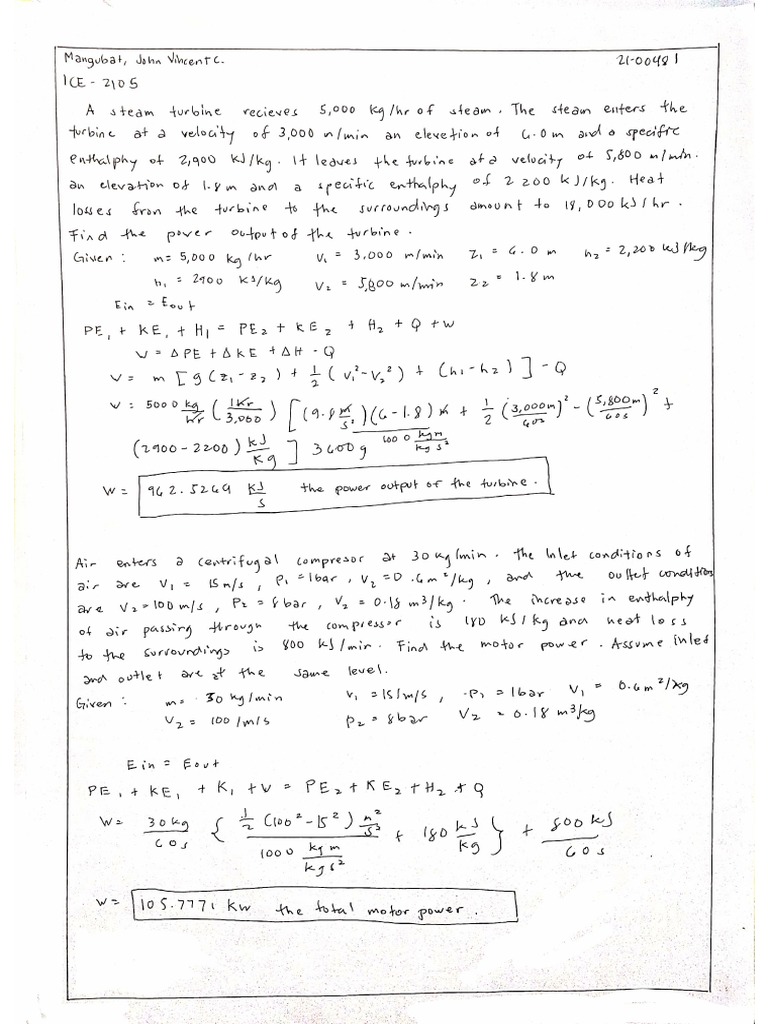 Mangubat, John Vincent C. 21-00481
ICE - 2105
A steam turbine recieves 5,000 kg/hr of steam. The steam enters the
turbine at a velocity of 3,000 m/min an elevetion of 6.0 m and a specific
enthalphy of 2,900 kJ/kg. It leaves the turbine at a velocity of 5,800 m/min.
an elevation of 1.8 m and a specific enthalphy of 2 200 kJ/kg. Heat
losses from the turbine to the surroundings amount to 18,000 kJ/hr.
Find the power output of the turbine.
Given: m= 5,000 kg/hr V₁ = 3,000 m/min Z₁ = 6.0 m h₂ = 2,200 kJ/kg
h₁ = 2900 kJ/kg V₂ = 5,800 m/min Z₂ = 1.8 m
Ein = Eout
PE₁ + KE₁ + H₁ = PE₂ + KE₂ + H₂ + Q + W
V = ΔPE + ΔKE + ΔH - Q
V = m [g(z₁ - z₂) + 1/2 (V₁² - V₂²) + (h₁ - h₂)] - Q
W = 5000 kg/hr (1hr/3,000) [(9.8 m/s²)(6-1.8) m + 1/2 (3,000m/60s)² - (5,800m/60s)² +
1000 kgm/kg s²
(2900 - 2200) kJ/kg ] 3600g
W = 962.5269 kJ/s the power output of the turbine.
Air enters a centrifugal compresor at 30 kg/min. The Inlet conditions of
air are V₁ = 15 m/s, P₁ = 1 bar, V₂ = 0.6 m²/kg, and the outlet condition
are V₂ = 100 m/s, P₂ = 8 bar, V₂ = 0.18 m³/kg. The increase in enthalphy
of air passing through the compressor is 180 kJ/kg and heat loss
to the surroundings is 800 kJ/min. Find the motor power. Assume inlet
and outlet are at the same level.
Given: m= 30 kg/min V₁ = 15/m/s, P₁ = 1bar V₁ = 0.6 m²/kg
V₂ = 100/m/s P₂ = 8bar V₂ = 0.18 m³/kg
Ein = Eout
PE₁ + KE₁ + K₁ + V = PE₂ + KE₂ + H₂ + Q
W = 30 kg/60s { 1/2 (100² - 15²) m²/s² / 1000 kg m/kg s² + 180 kJ/kg } + 800 kJ/60s
W = 105.7771 kW the total motor power.